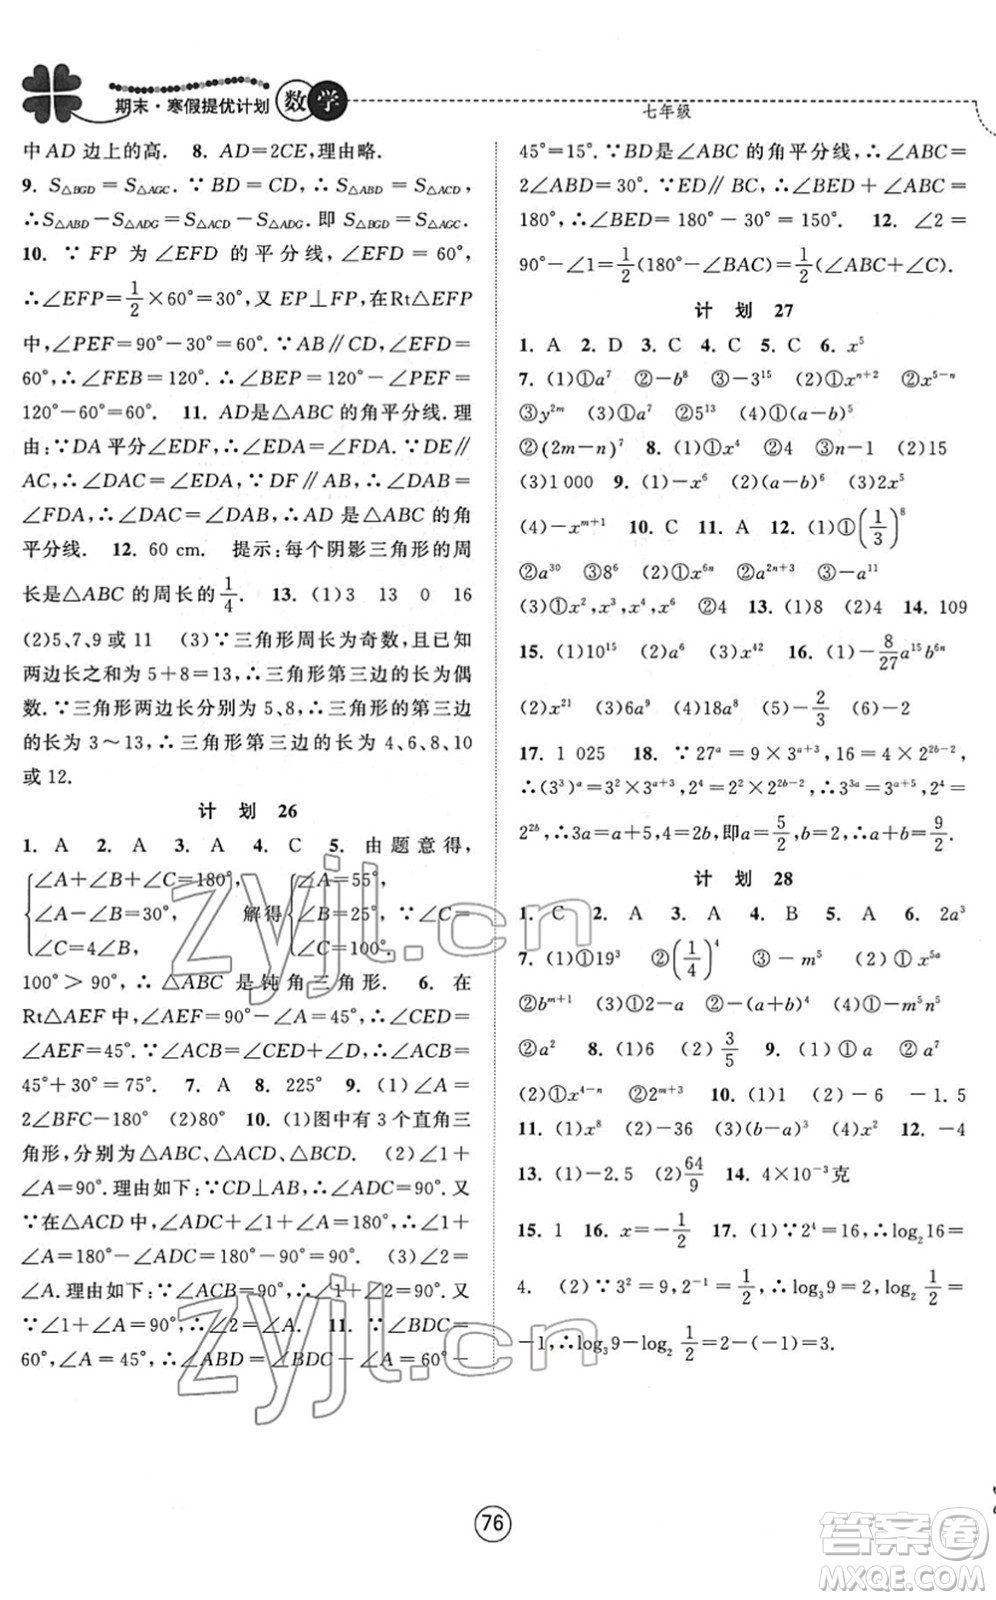 期末·寒假提优计划 数学
七年级
中 AD 边上的高. 8. AD=2CE,理由略.
9. S△BGD=S△AGC. ∵BD=CD,∴S△ABD=S△ACD,
∴S△ABD-S△ADG=S△ACD-S△ADG. 即 S△BGD=S△AGC.
10. ∵ FP 为∠EFD 的平分线,∠EFD=60°,
∴∠EFP=1/2×60°=30°,又 EP⊥FP,在Rt△EFP
中,∠PEF=90°-30°=60°. ∵AB∥CD,∠EFD=
60°,∴∠FEB=120°. ∴∠BEP=∠BEF-∠PEF=
120°-60°=60°. 11. AD是△ABC 的角平分线.理
由:∵DA平分∠EDF,∴∠EDA=∠FDA. ∵DE∥
AC,∴∠DAC=∠EDA,∵DF∥AB,∴∠DAB=
∠FDA,∴∠DAC=∠DAB. ∴AD是△ABC 的角
平分线. 12. 60 cm. 提示:每个阴影三角形的周
长是△ABC 的周长的1/4. 13. (1)3 13 0 16
(2)5、7、9或 11 (3)∵三角形周长为奇数,且已知
两边长之和为 5+8=13,∴三角形第三边的长为偶
数.∵三角形两边长分别为 5、8,∴三角形的第三边
的长为 3～13,∴三角形第三边的长为 4、6、8、10
或 12.
计 划 26
1. A 2. A 3. A 4. C 5. 由题意得,
{∠A+∠B+∠C=180°, {∠A=55°,
∠A-∠B=30°, 解得 ∠B=25°, ∵∠C=
∠C=4∠B, ∠C=100°.
100°>90°,∴△ABC 是钝角三角形. 6. 在
Rt△AEF中,∠AEF=90°-∠A=45°,∴∠CED=
∠AEF=45°. ∵∠ACB=∠CED+∠D,∴∠ACB=
45°+30°=75°. 7. A 8. 225° 9. (1)∠A=
2∠BFC-180° (2)80° 10. (1)图中有 3 个直角三
角形,分别为△ABC、△ACD、△BCD. (2)∠1+
∠A=90°.理由如下:∵CD⊥AB,∴∠ADC=90°.又
∵在△ACD 中,∠ADC+∠1+∠A=180°,∴∠1+
∠A=180°-∠ADC=180°-90°=90°. (3)∠2=
∠A.理由如下:∵∠ACB=90°,∴∠1+∠2=90°.又
∵∠1+∠A=90°,∴∠2=∠A. 11. ∵∠BDC=
60°,∠A=45°,∴∠ABD=∠BDC-∠A=60°-
45°=15°. ∵BD是∠ABC 的角平分线,∴∠ABC=
2∠ABD=30°. ∵ED∥BC,∴∠BED+∠ABC=
180°,∴∠BED=180°-30°=150°. 12. ∠2=
90°-∠1=1/2(180°-∠BAC)=1/2(∠ABC+∠C).
计 划 27
1. A 2. D 3. C 4. C 5. C 6. x⁵
7. (1)①a⁷ ②-b⁸ ③-3¹⁵ (2)①xⁿ⁺² ②x⁵⁻ⁿ
③y²ᵐ (3)①a⁷ ②5¹³ (4)①(a-b)⁵
②(2m-n)⁷ 8. (1)①x⁴ ②4 ③n-1 (2)15
(3)1 000 9. (1)-x⁶ (2)(a-b)⁶ (3)2x⁵
(4)-xᵐ⁺¹ 10. C 11. A 12. (1)①(1/3)⁸
②a³⁰ ③8⁶ (2)①x⁶ⁿ ②a²ⁿ⁺³ ③-a¹¹
(3)①x²,x³,x⁴,x⁶ ②4 13. (1)8 (2)4 14. 109
15. (1)10¹⁵ (2)a⁶ (3)x⁴² 16. (1)-8/27 a¹⁵b⁶ⁿ
(2)x²¹ (3)6a⁹ (4)18a⁸ (5)-2/3 (6)-2
17. 1 025 18. ∵27ᵃ=9×3ᵃ⁺³,16=4×2²ᵇ⁻²,
∴(3³)ᵃ=3²×3ᵃ⁺³,2⁴=2²×2²ᵇ⁻²,∴3³ᵃ=3ᵃ⁺⁵,2⁴=
2²ᵇ,∴3a=a+5,4=2b,即a=5/2,b=2,∴a+b=9/2.
计 划 28
1. C 2. A 3. A 4. B 5. A 6. 2a³
7. (1)①19³ ②(1/4)⁴ ③-m⁵ (2)①x⁵ᵃ
②bᵐ⁺¹ (3)①2-a ②-(a+b) (4)①-m⁵n⁵
②a² 8. (1)6 (2)3/5 9. (1)①a ②a⁷
(2)①x⁴⁻ⁿ ②2ᵐ⁺³ 10. (1)1 (2)-6 (3)-1.5
11. (1)x⁸ (2)-36 (3)(b-a)³ (4)x² 12. -4
13. (1)-2.5 (2)64/9 14. 4×10⁻³克
15. 1 16. x=-1/2 17. (1)∵2⁴=16,∴log₂16=
4. (2)∵3²=9,2⁻¹=1/2,∴log₃9=2,log₂1/2=
-1,∴log₃9-log₂1/2=2-(-1)=3.
76
zyjl.cn
zyjl.cn
答案圈
MXQE.COM